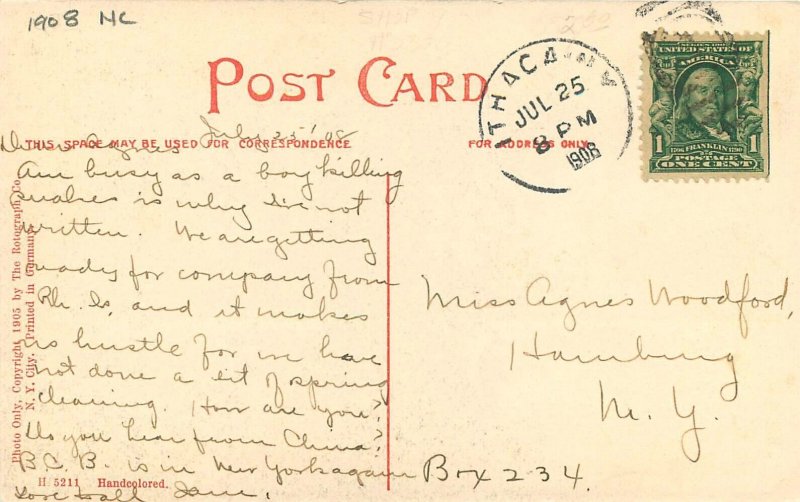 1908 NC
POST CARD
THIS SPACE MAY BE USED FOR CORRESPONDENCE
FOR ADDRESS ONLY.
ITHACA, N.Y.
JUL 25
8 PM
1908
SERIES 1902
UNITED STATES OF
AMERICA
1706 FRANKLIN 1790
1 POSTAGE 1
ONE CENT
July 25 '08
Dear Agnes
Am busy as a boy killing
snakes is why I've not
written. We are getting
ready for company from
Rh. Is. and it makes
us hustle for we have
not done a bit of spring
cleaning. How are you?
Do you hear from China?
B.C.B. is in New York again
Love to all Jane.
Miss Agnes Woodford,
Hamburg
N. Y.
Box 234.
Photo Only, Copyright 1905 by The Rotograph Co.
N. Y. City. Printed in Germany.
H 5211 Handcolored.